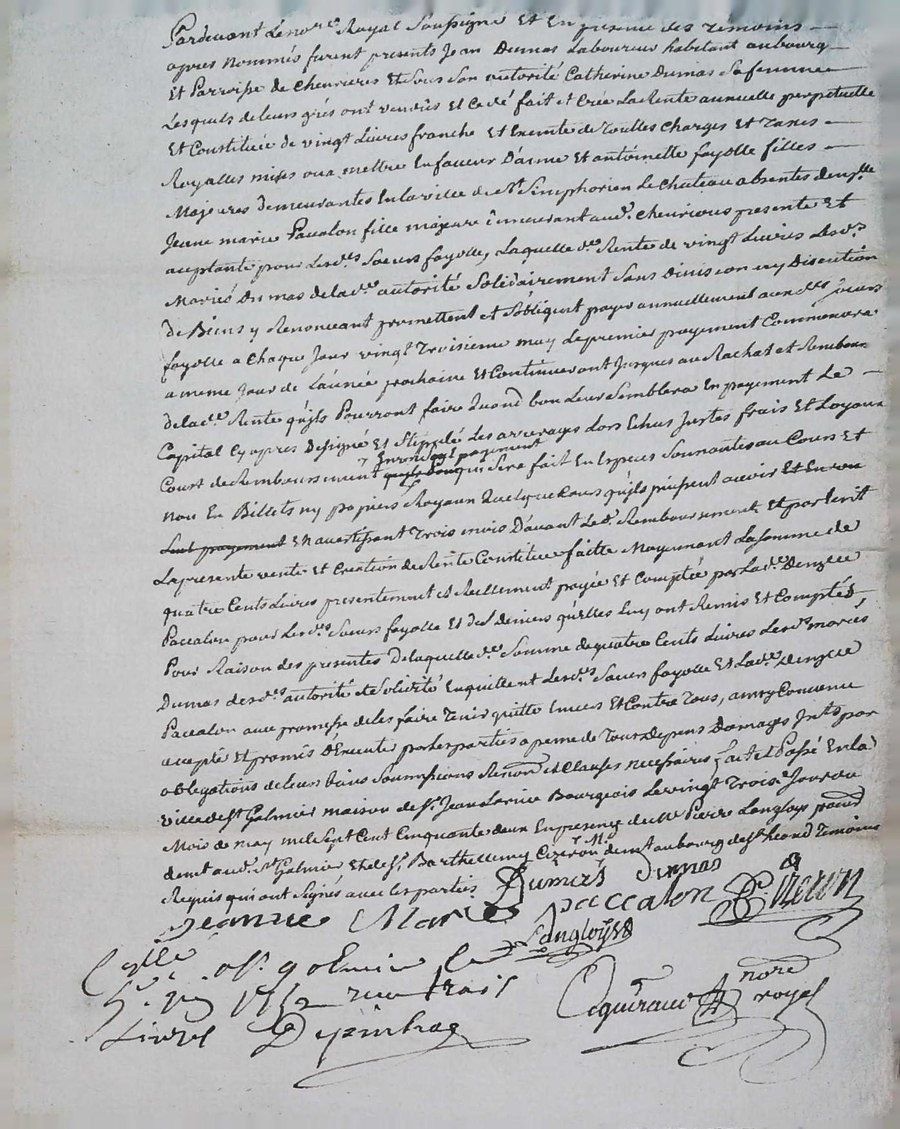 Pardevant Le nore Royal Soussigné Et En presence des temoins
apres nommés furent presents Jean Dumas Laboureur habitant au bourg
Et Parroisse de Chevrieres Et Sous Son autorité Catherine Dumas Sa femme
Lesquels de leurs grés ont vendus Et Cedé fait et Crée La Rente annuelle perpetuelle
Et Constituée de vingt Livres franche Et Exemte de Toutes Charges Et Taxes
Royalles mises ou a mettre En faveur D'anne Et antoinette fayolle filles
Majeures Demeurantes En la ville de St Simphorien Le Chateau absentes
Jeanne marie Paccalon fille majeure demeurant aud. Chevrieres presente Et
aceptante pour Lesd.es Soeurs fayolle, Laquelle d.e Rente de vingt Livres Lesd.s
Mariés Dumas de lad.e autorité Solidairement Sans Division ny Discution
de Biens y Renonceant promettent et S'obligent payer annuellement auxd.es Soeurs
fayolle a Chaque Jour vingt Troisieme may Le premier payement Commencera
a meme Jour de L'année prochaine Et Continueront Jusques au Rachat et Rembour
de lad.e Rente qu'ils Pourront faire Quand bon Leur Semblera En payement Le
Capital Cy apres Designé Et Stipulé Les arrerages Lors Echus Justes frais Et Loyaux
payement
Cout de Rembourcement qui Sera fait En Especes Sonnantes au Cours Et
non En Billets ny papiers Royaux Quelque Cours qu'ils puissent avoir Et En
payement En avertissant Trois mois D'avant Led. Remboursement Et par Ecrit
La presente vente Et Creation de Rente Constituée faitte Moyennant La Somme de
quatre Cents Livres presentement et Reellement payée Et Comptée par Lad.e Demlle
Paccalon pour Lesd.es Soeurs fayolle Et des deniers qu'elles Luy ont Remis Et Comptés,
Pour Raison des presentes De laquelle d.e Somme de quatre Cents Livres Lesd.s mariés
Dumas de sd.es autorité Solidité En quittent Lesd.es Soeurs fayolle Et Lad.e Demlle
Paccalon avec promesse de les faire Tenir quitte Envers Et Contre Tous, ainsy Convenu
accepté Et promis D'Executer par les parties a peine de Tous Depens Domages Jnts par
obligations de leurs biens Soumissions Renon et Clauses necessaires fait et Passé En la
ville de St Galmier maison de Sr. Jean Bourgeois Le vingt Trois.e Jour du
Mois de may mil Sept Cent Cinquante deux En presence de Mr Pierre Langloys
demt aud. St Galmier Et de Sr. Barthellemy Cizeron demt au bourg de St Temoins
Requis qui ont Signés avec les parties
Dumas Dumas
Jeanne Marie paccalon Cizeron
Langloys
Cllé a St galmier Le
1752 recu trois
Livres Dejainbrag
nore
royal